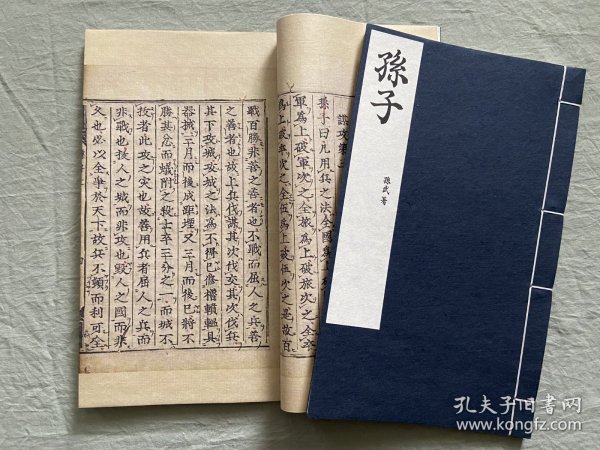 孫子
孫武著
謀攻第三
孫子曰凡用兵之法全國爲上破
軍爲上破軍次之全旅爲上破旅次之全卒
爲上破卒次之全伍爲上破伍次之是故百
戰百勝非善之善者也不戰而屈人之兵善
之善者也故上兵伐謀其次伐交其次伐兵
其下攻城攻城之法爲不得已修櫓轒轀具
器械三月而後成距堙又三月而後已將不
勝其忿而蟻附之殺士卒三分之一而城不
拔者此攻之災也故善用兵者屈人之兵而
非戰也拔人之城而非攻也毀人之國而非
久也必以全爭於天下故兵不頓而利可全
孔夫子旧書网
www.kongfz.com